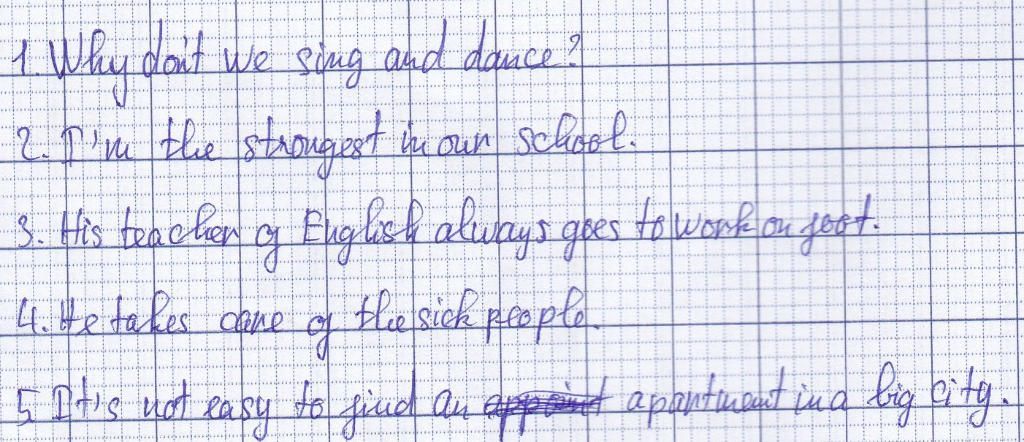 1. Why don't we sing and dance?
2. I'm the strongest in our school.
3. His teacher of English always goes to work on foot.
4. He takes care of the sick people.
5. It's not easy to find an apartment in a big city.